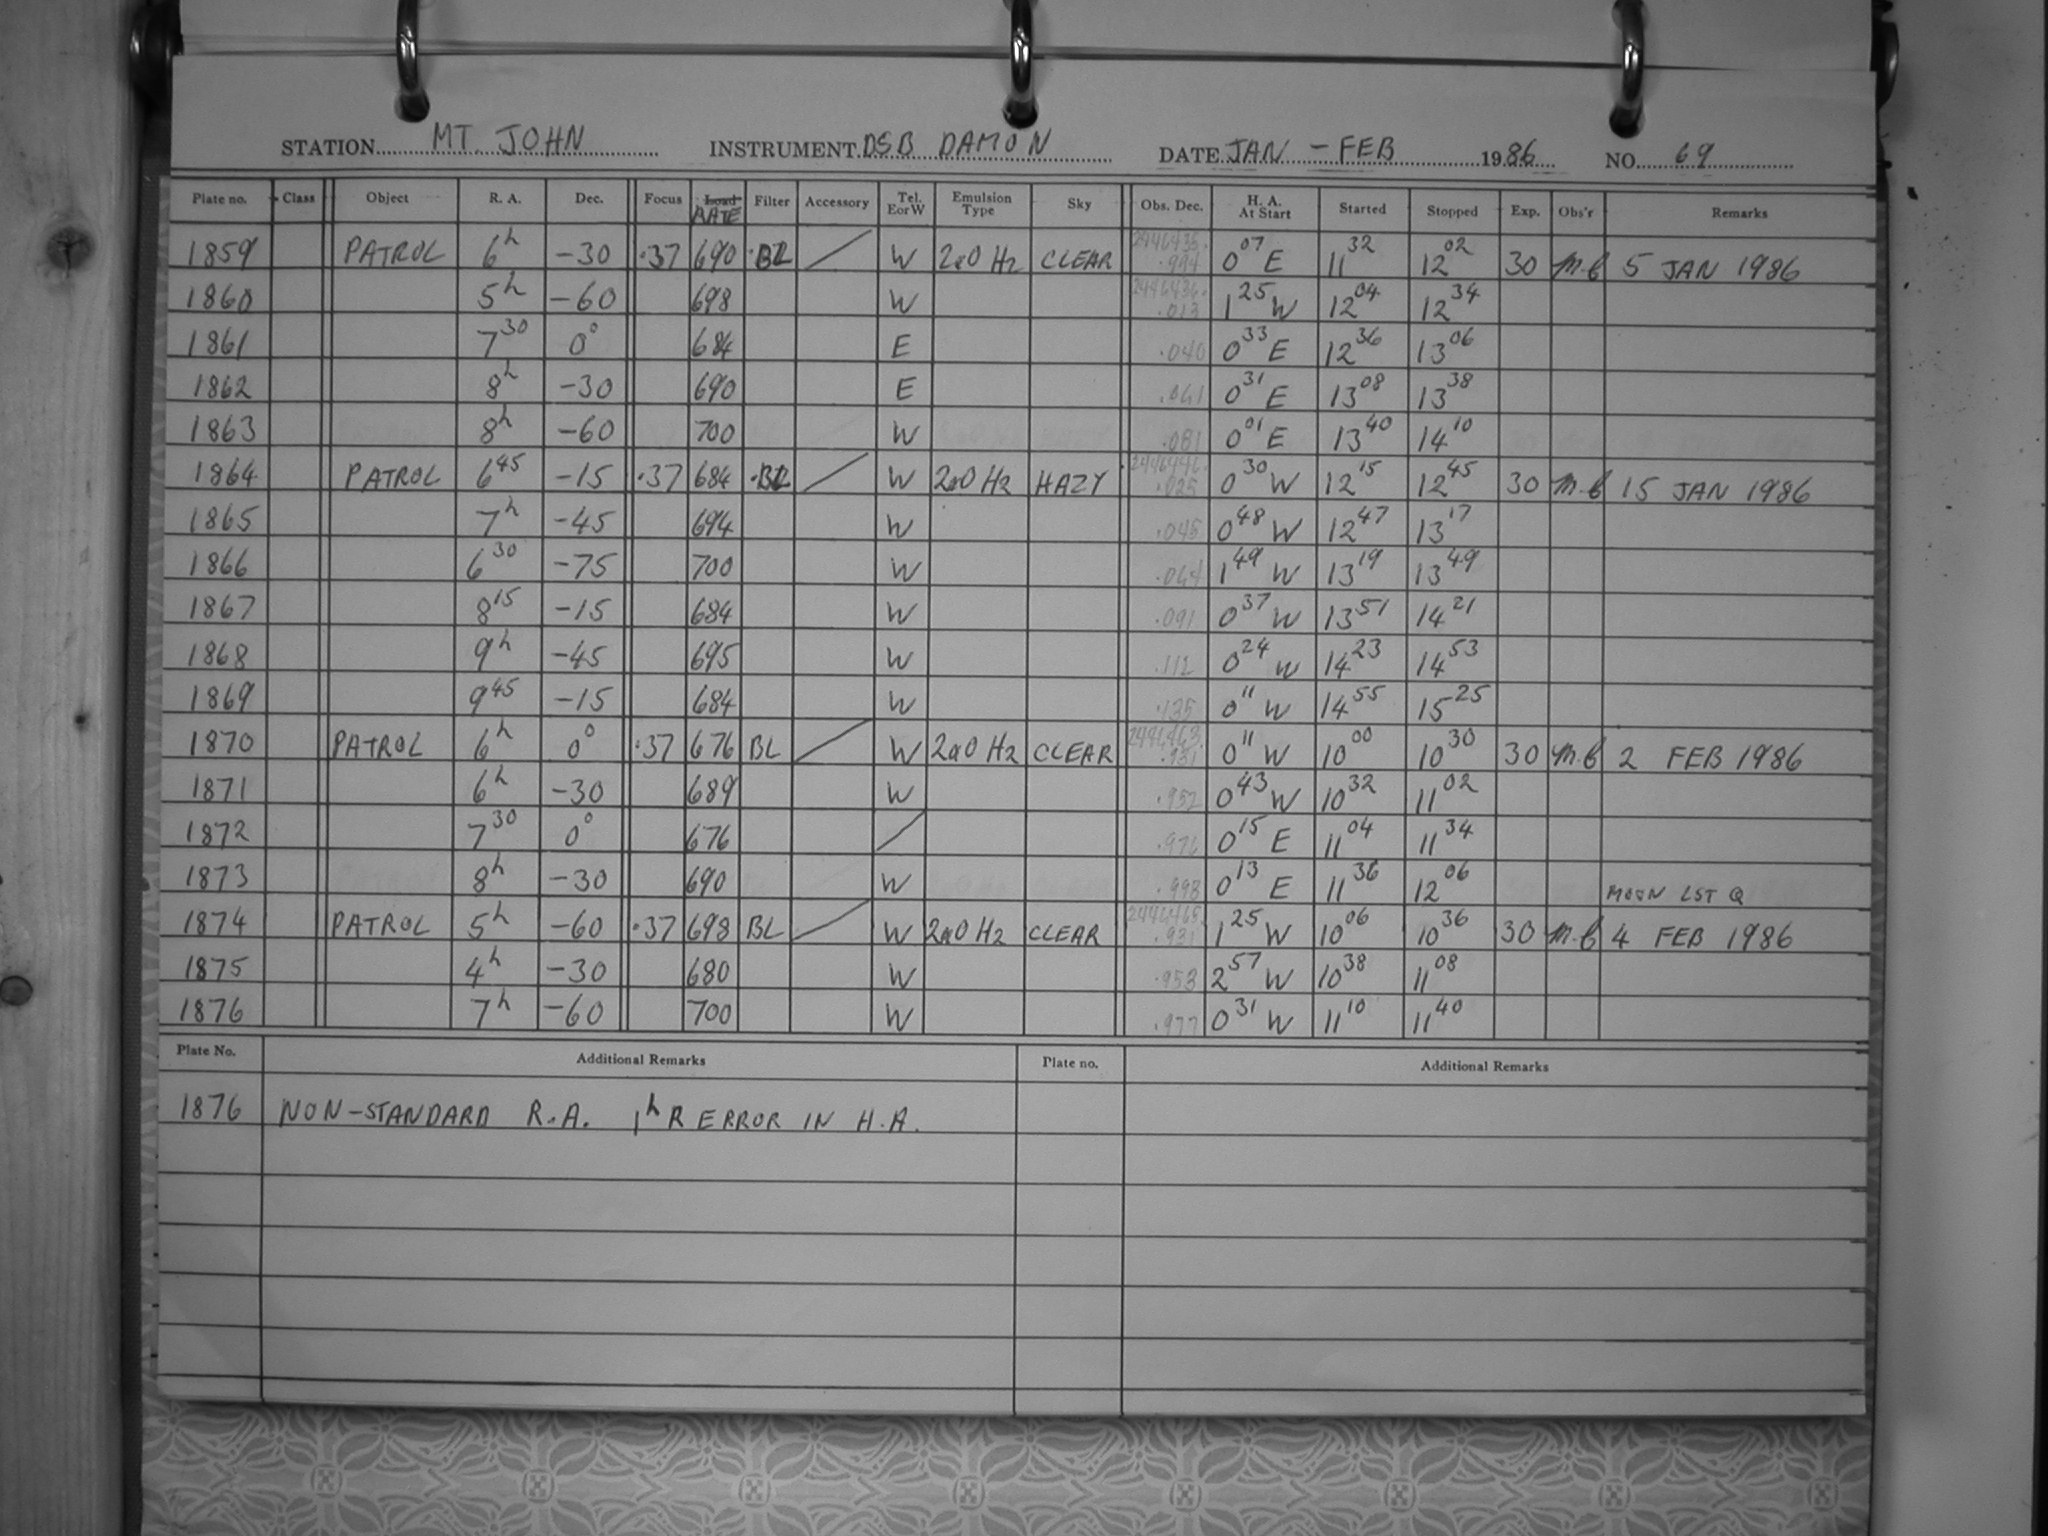 STATION MT. JOHN INSTRUMENT DSB DAMON DATE JAN - FEB 1986 NO. 69
Plate no. Class Object R. A. Dec. Focus RATE Filter Accessory Tel. E or W Emulsion Type Sky Obs. Dec. H. A. At Start Started Stopped Exp. Obs'r Remarks
1859 PATROL 6h -30 .37 690 BL W 2a0 Hz CLEAR 0 07 E 11 32 12 02 30 5 JAN 1986
1860 5h -60 698 W 2446436. .013 1 25 W 12 04 12 34
1861 7 30 0° 684 E .040 0 33 E 12 36 13 06
1862 8h -30 690 E .061 0 31 E 13 08 13 38
1863 8h -60 700 W .081 0 01 E 13 40 14 10
1864 PATROL 6 45 -15 .37 684 BL W 2a0 Hz HAZY 2446446. .025 0 30 W 12 15 12 45 30 15 JAN 1986
1865 7h -45 694 W .045 0 48 W 12 47 13 17
1866 6 30 -75 700 W .064 1 49 W 13 19 13 49
1867 8 15 -15 684 W .091 0 37 W 13 51 14 21
1868 9h -45 695 W .112 0 24 W 14 23 14 53
1869 9 45 -15 684 W .135 0 11 W 14 55 15 25
1870 PATROL 6h 0° .37 676 BL W 2a0 Hz CLEAR 2446463. .931 0 11 W 10 00 10 30 30 2 FEB 1986
1871 6h -30 689 W .952 0 43 W 10 32 11 02
1872 7 30 0° 676 .976 0 15 E 11 04 11 34
1873 8h -30 690 W .998 0 13 E 11 36 12 06 MOON LST Q
1874 PATROL 5h -60 .37 698 BL W 2a0 Hz CLEAR 2446465. .931 1 25 W 10 06 10 36 30 4 FEB 1986
1875 4h -30 680 W .953 2 57 W 10 38 11 08
1876 7h -60 700 W .977 0 31 W 11 10 11 40
Plate No. Additional Remarks Plate no. Additional Remarks
1876 NON-STANDARD R.A. 1h R ERROR IN H.A.